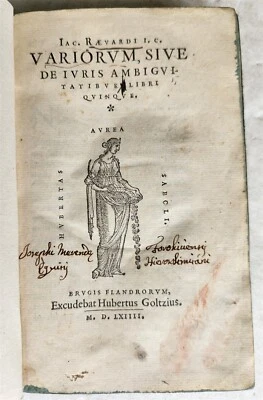 IAC. RÆVARDI I. C.
VARIORVM, SIVE
DE IVRIS AMBIGVI-
TATIBVS LIBRI
QVINQVE.
*
AVREA
HVBERTAS
SAECLI.
Josephi
BRVGIS FLANDRORVM,
Excudebat Hubertus Goltzius.
M. D. LXIIII.